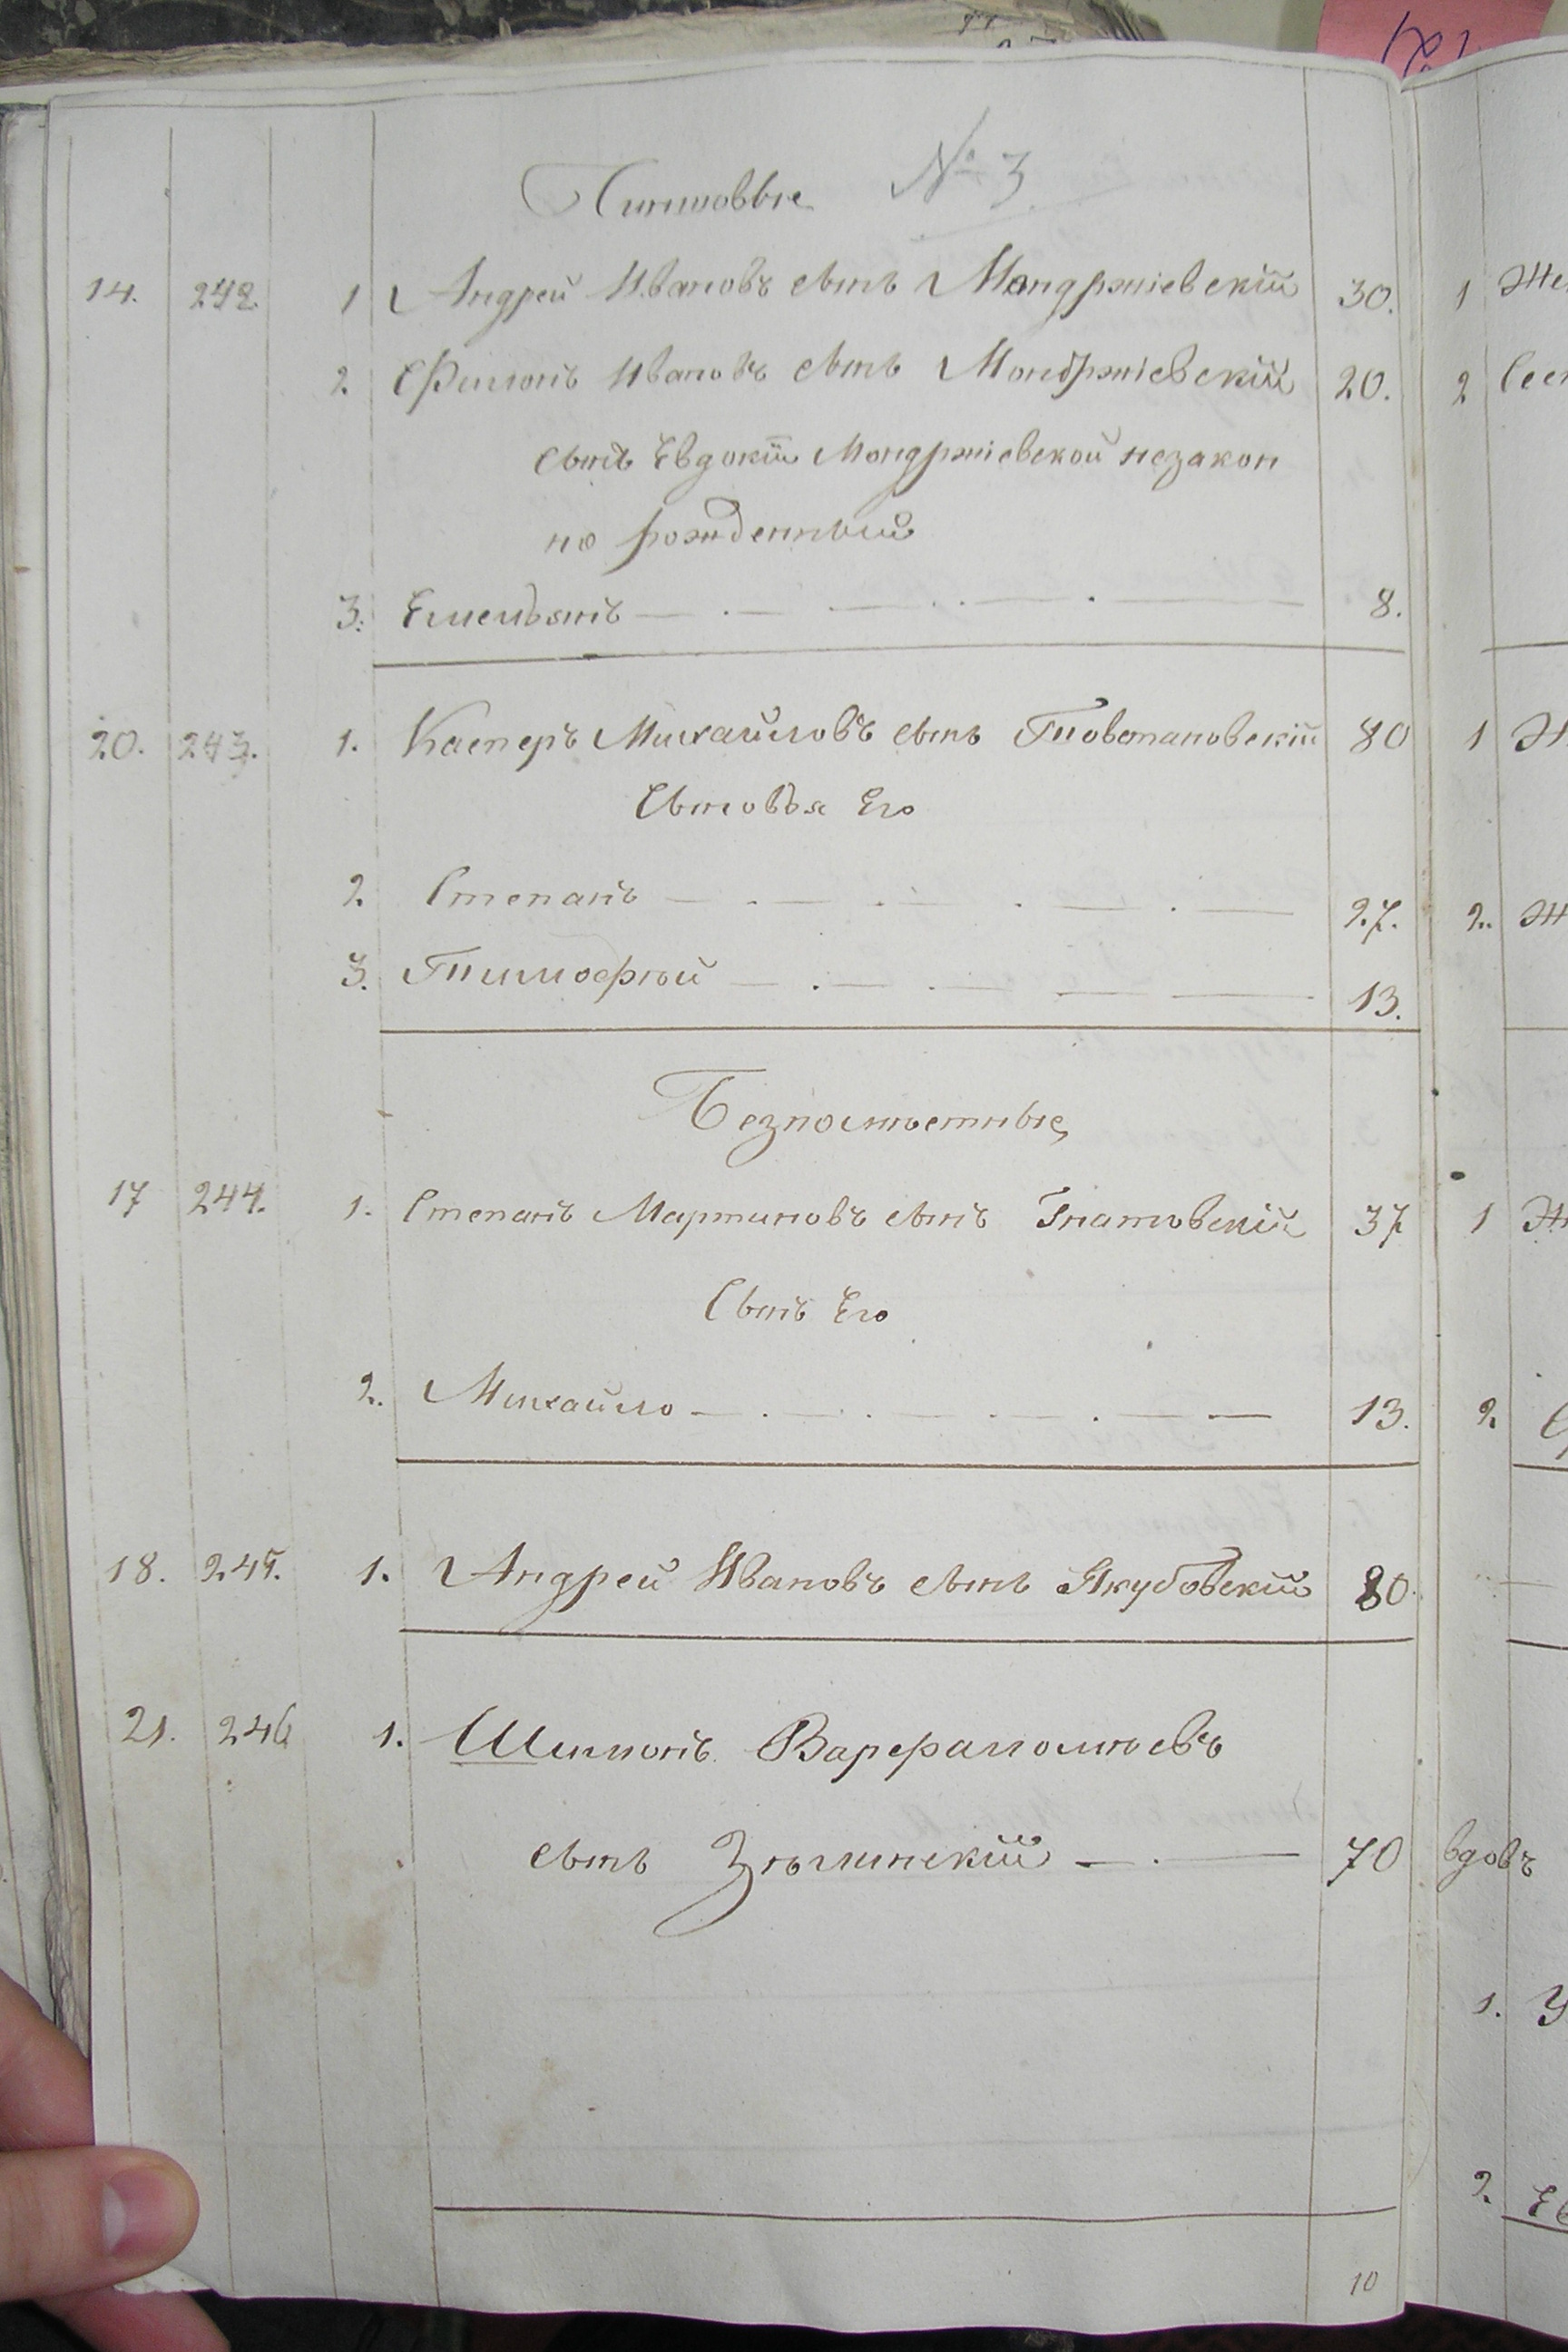 № 3
Чиншовые
14. 242 1 Андрей Ивановъ сынъ Мондржіевскій 30. 1
2. Филипъ Ивановъ сынъ Мондржіевскій 20. 2
сынъ Евдокіи Мондржіевской незакон
но рожденный
3. Емельянъ 8.
20. 243. 1. Касперъ Михайловъ сынъ Товстановскій 80 1
Сыновья Его
2. Степанъ 27. 2.
3. Тимофѣй 13.
Безпомѣстные
17 244. 1. Степанъ Мартиновъ сынъ Гнатовскій 37 1
Сынъ Его
2. Михайло 13. 2.
18. 245. 1. Андрей Ивановъ сынъ Якубовскій 80.
21. 246 1. Шимонъ Варфаломѣевъ
сынъ Зѣлинскій 70 вдовъ
1.
2.
10